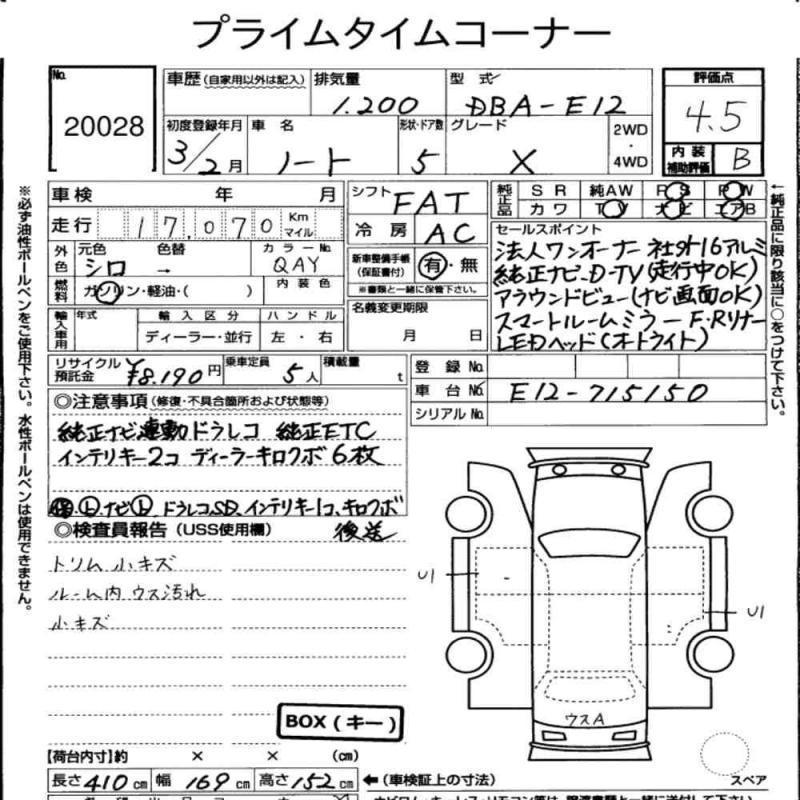 プライムタイムコーナー
No.
20028
車歴(自家用以外は記入)
排気量
1.200
型式
DBA-E12
評価点
4.5
初度登録年月
3/2月
車名
ノート
形状・ドア数
5
グレード
X
2WD
・
4WD
内装
補助評価
B
車検 年 月
シフト
FAT
純正品
SR 純AW PS PW
カワ TV ナビ エアB
走行 17,070 Km マイル
冷房
AC
セールスポイント
法人ワンオーナー 社外16アルミ
純正ナビ.D-TV(走行中OK)
アラウンドビュー(ナビ画面OK)
スマートルームミラー F・Rソナー
LEDヘッド(オートライト)
外色
元色
シロ
色替
→
カラーNo.
QAY
新車整備手帳
(保証書付)
有・無
※書類と一緒に保管下さい。
燃料
ガソリン・軽油・( )
内装色
名義変更期限
月 日
輸入車用
年式
輸入区分
ディーラー・並行
ハンドル
左・右
リサイクル
預託金
¥8.190円
乗車定員
5人
積載量
t
登録No.
車台No.
E12-715150
シリアルNo.
◎注意事項(修復・不具合箇所および状態等)
純正ナビ連動ドラレコ 純正ETC
インテリキー2コ ディーラーキロクボ6枚
ナビ ドラレコSD、インテリキー1コ、キロクボ
後送
◎検査員報告(USS使用欄)
トリム小キズ
ルーム内ウス汚れ
小キズ
U1
U1
ウスA
BOX(キー)
スペア
【荷台内寸】約 × × (cm)
長さ410cm 幅169cm 高さ152cm
←(車検証上の寸法)
※必ず油性ボールペンをご使用下さい。水性ボールペンは使用できません。
←純正品に限り該当に○をつけて下さい。